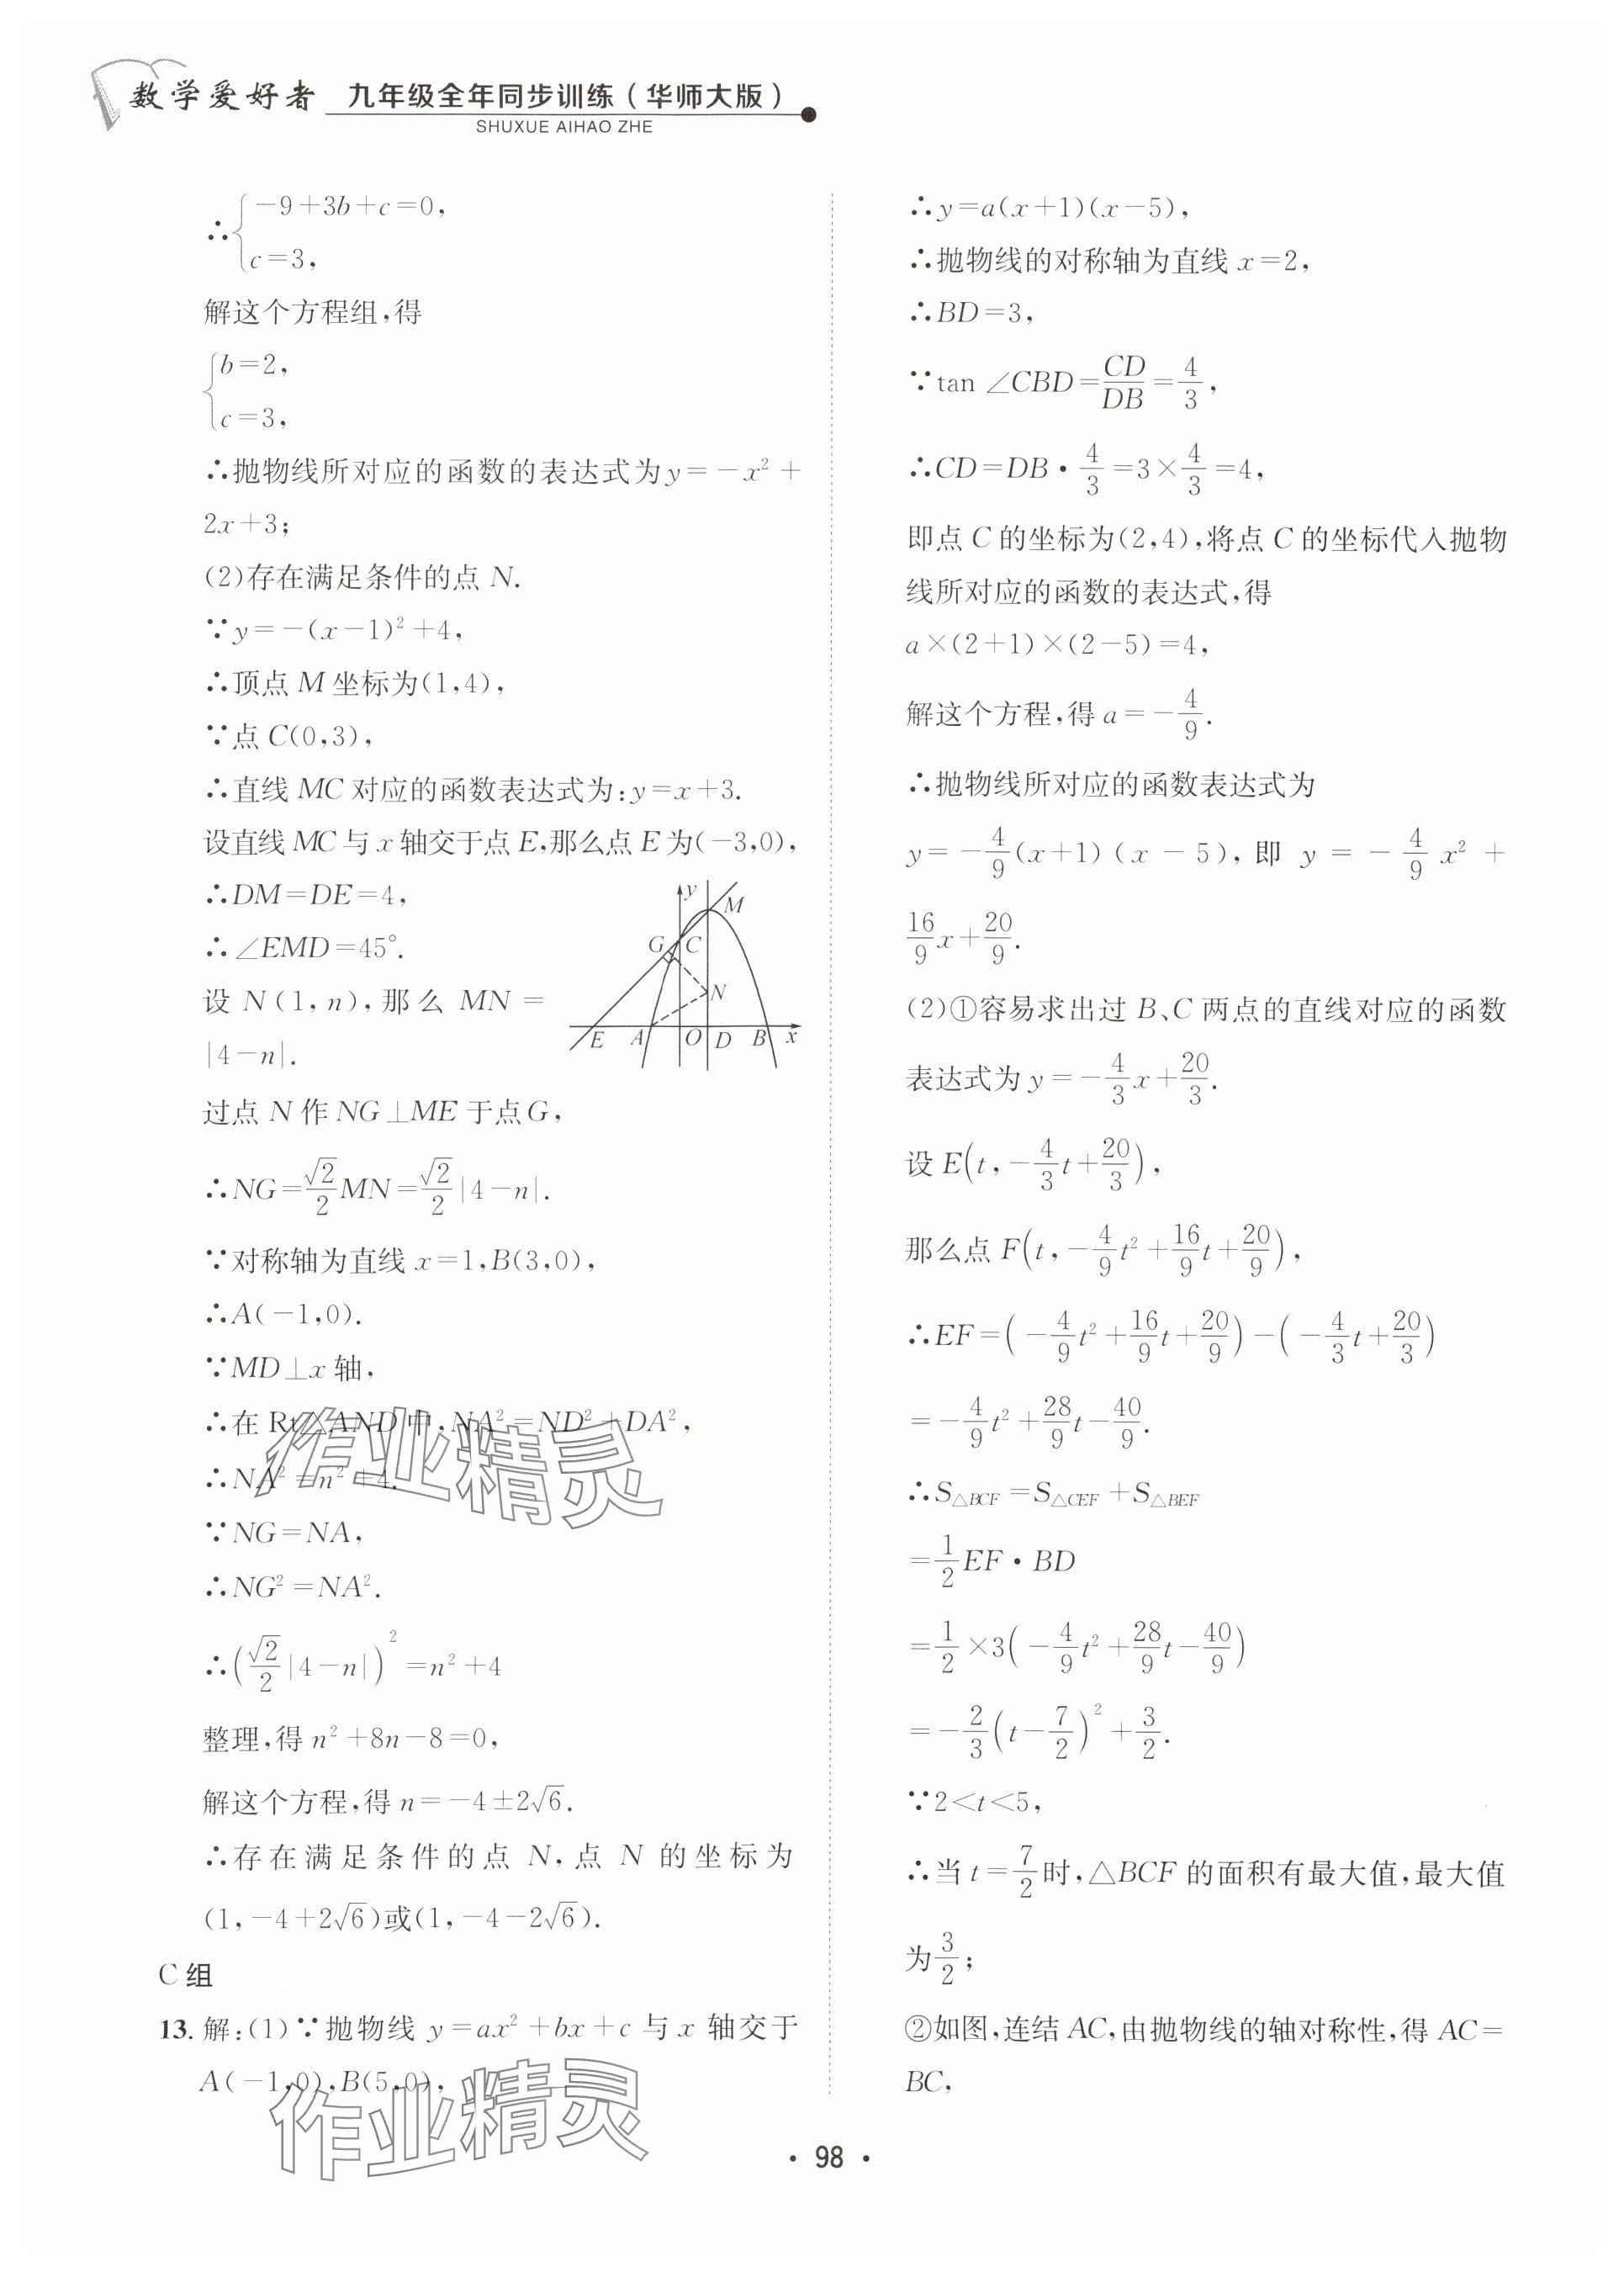 数学爱好者 九年级全年同步训练(华师大版)
SHUXUE AIHAO ZHE
∴{-9+3b+c=0,
c=3,
解这个方程组,得
{b=2,
c=3,
∴抛物线所对应的函数的表达式为y=-x²+
2x+3;
(2)存在满足条件的点 N.
∵y=-(x-1)²+4,
∴顶点 M 坐标为(1,4),
∵点 C(0,3),
∴直线 MC 对应的函数表达式为:y=x+3.
设直线 MC 与 x 轴交于点 E,那么点 E 为(-3,0),
∴DM=DE=4,
∴∠EMD=45°.
设 N(1,n),那么 MN=
|4-n|.
y
M
G
C
N
E
A
O
D
B
x
过点 N 作 NG⊥ME 于点G,
∴NG=√2/2MN=√2/2|4-n|.
∵对称轴为直线 x=1,B(3,0),
∴A(-1,0).
∵MD⊥x 轴,
∴在 Rt△AND 中,NA²=ND²+DA²,
∴NA²=n²+4.
∵NG=NA,
∴NG²=NA².
∴(√2/2|4-n|)²=n²+4
整理,得 n²+8n-8=0,
解这个方程,得 n=-4±2√6.
∴存在满足条件的点 N,点 N 的坐标为
(1,-4+2√6)或(1,-4-2√6).
C 组
13.解:(1)∵抛物线 y=ax²+bx+c 与 x 轴交于
A(-1,0),B(5,0),
∴y=a(x+1)(x-5),
∴抛物线的对称轴为直线 x=2,
∴BD=3,
∵tan ∠CBD=CD/DB=4/3,
∴CD=DB·4/3=3×4/3=4,
即点 C 的坐标为(2,4),将点 C 的坐标代入抛物
线所对应的函数的表达式,得
a×(2+1)×(2-5)=4,
解这个方程,得 a=-4/9.
∴抛物线所对应的函数表达式为
y=-4/9(x+1)(x-5),即 y=-4/9x²+
16/9x+20/9.
(2)①容易求出过 B、C 两点的直线对应的函数
表达式为 y=-4/3x+20/3.
设 E(t,-4/3t+20/3),
那么点 F(t,-4/9t²+16/9t+20/9),
∴EF=(-4/9t²+16/9t+20/9)-(-4/3t+20/3)
=-4/9t²+28/9t-40/9.
∴S△BCF=S△CEF+S△BEF
=1/2EF·BD
=1/2×3(-4/9t²+28/9t-40/9)
=-2/3(t-7/2)²+3/2.
∵2<t<5,
∴当 t=7/2时,△BCF 的面积有最大值,最大值
为3/2;
②如图,连结 AC,由抛物线的轴对称性,得 AC=
BC,
作业精灵
作业精灵
·98·